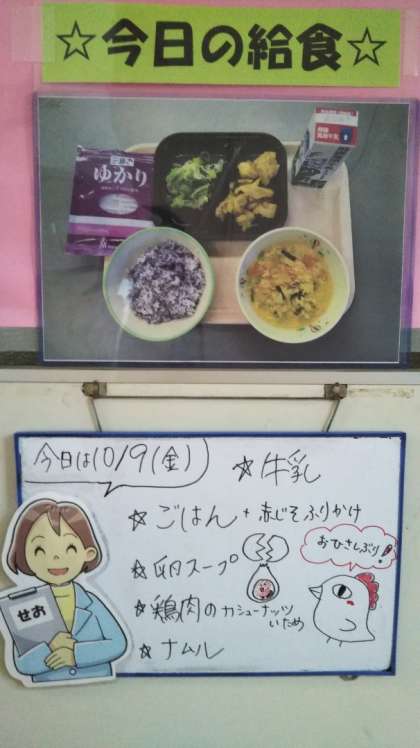 ☆今日の給食☆
ゆかり
今日は10/9(金)
☆牛乳
☆ごはん+赤じそふりかけ
☆卵スープ
☆鶏肉のカシューナッツ
いため
☆ナムル
おひさしぶり!
せお